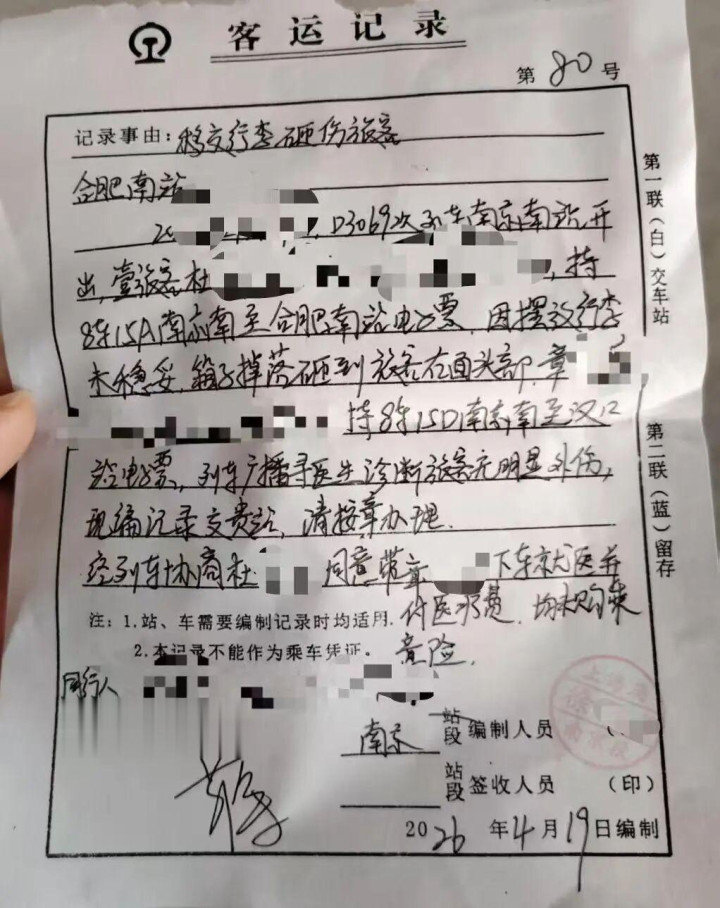 客运记录
第 80 号
记录事由：移交行李砸伤旅客
合肥南站
20 D3069次列车南京南站开
出，壹旅客杜 ，持
8车15A南京南至合肥南站电子票，因摆放行李
未稳妥，箱子掉落砸到旅客右面头部，章
持8车15D南京南至汉口
站电子票，列车广播寻医生诊断旅客无明显外伤，
现编记录交贵站，请按章办理.
经列车协商杜 同意带章 下车就医并
付医疗费，均未购乘
意险.
注：1.站、车需要编制记录时均适用.
2.本记录不能作为乘车凭证。
同行人
南京 站段 编制人员
站段 签收人员 （印）
2026 年4月19日编制
第一联（白）交车站
第二联（蓝）留存
上海
南京段